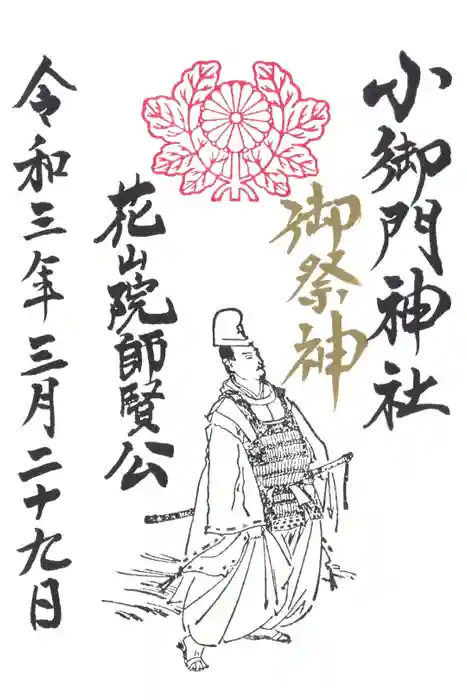 小御門神社
御祭神
花山院師賢公
令和三年三月二十九日